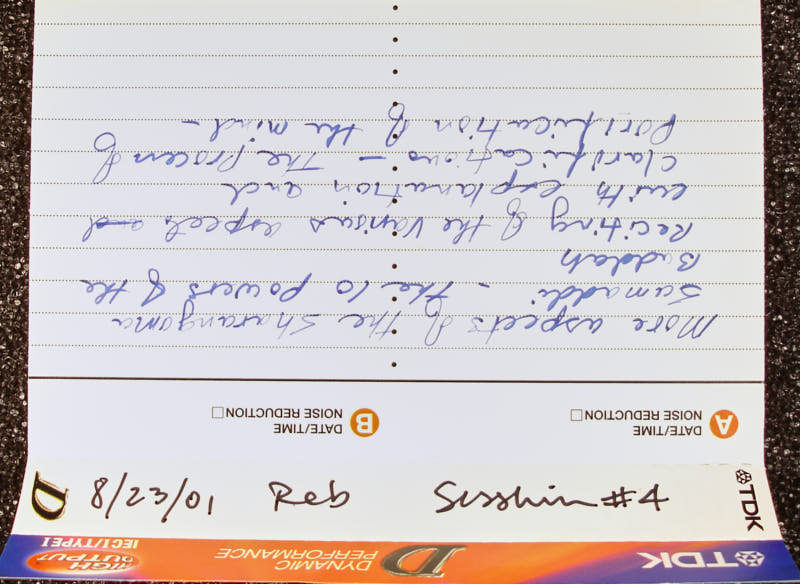 More aspects of the Sharangama
Samaddi - the 10 powers of the
Buddah
Reciting of the various aspects and
with explanation and
clarifications - The Process of
Purification of the mind -
A DATE/TIME
NOISE REDUCTION
B DATE/TIME
NOISE REDUCTION
D 8/23/01 Reb Sesshin #4 TDK
TDK D DYNAMIC PERFORMANCE
HIGH OUTPUT IEC I/TYPE I